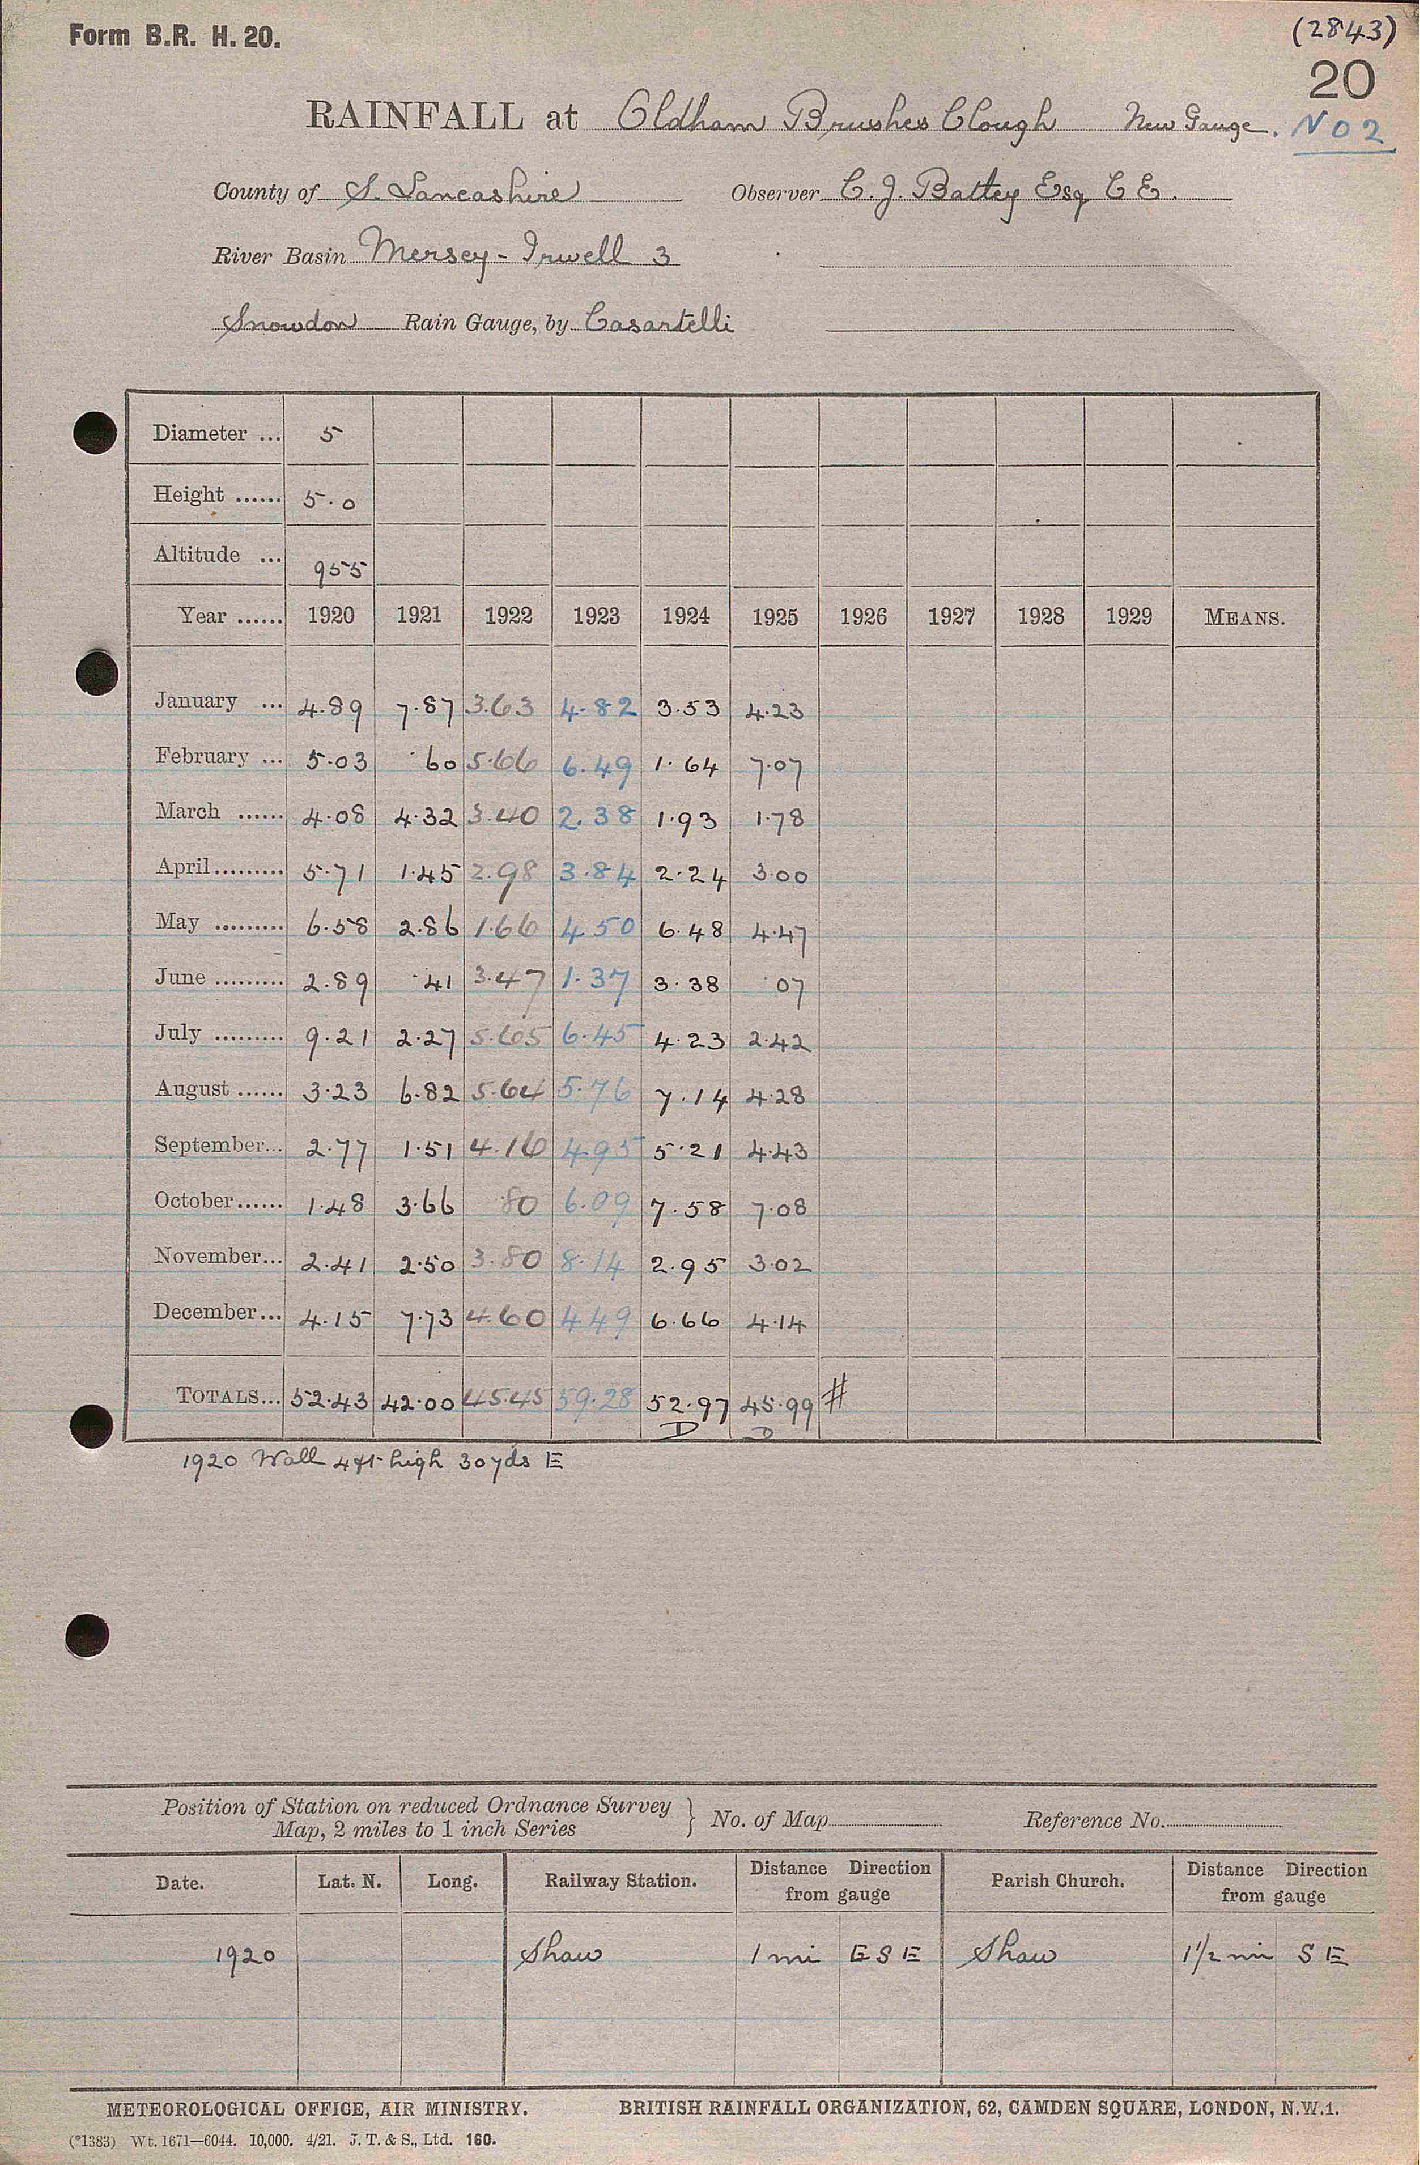 Form B.R. H. 20.
(2843)
20
RAINFALL at Oldham Brushes Clough New Gauge. No 2
County of S. Lancashire Observer C. J. Battey Esq C E.
River Basin Mersey - Irwell 3
Snowdon Rain Gauge, by Casartelli
Diameter ... 5
Height ...... 5.0
Altitude ... 955
Year ...... 1920 1921 1922 1923 1924 1925 1926 1927 1928 1929 MEANS.
January ... 4.89 7.87 3.63 4.82 3.53 4.23
February ... 5.03 .60 5.66 6.49 1.64 7.07
March ...... 4.08 4.32 3.40 2.38 1.93 1.78
April ......... 5.71 1.45 2.98 3.84 2.24 3.00
May ......... 6.58 2.86 1.66 4.50 6.48 4.47
June ......... 2.89 .41 3.47 1.37 3.38 .07
July ......... 9.21 2.27 5.65 6.45 4.23 2.42
August ...... 3.23 6.82 5.64 5.76 7.14 4.28
September... 2.77 1.51 4.16 4.95 5.21 4.43
October ...... 1.48 3.66 .80 6.09 7.58 7.08
November... 2.41 2.50 3.80 8.14 2.95 3.02
December... 4.15 7.73 4.60 4.49 6.66 4.14
TOTALS... 52.43 42.00 45.45 59.28 52.97 45.99 #
D D
1920 Wall 4 ft high 30 yds E
Position of Station on reduced Ordnance Survey
Map, 2 miles to 1 inch Series } No. of Map Reference No.
Date. Lat. N. Long. Railway Station. Distance Direction from gauge Parish Church. Distance Direction from gauge
1920 Shaw 1 mi E S E Shaw 1 1/2 mi S E
METEOROLOGICAL OFFICE, AIR MINISTRY. BRITISH RAINFALL ORGANIZATION, 62, CAMDEN SQUARE, LONDON, N.W.1.
(*1383) Wt. 1671—6044. 10,000. 4/21. J. T. & S., Ltd. 160.